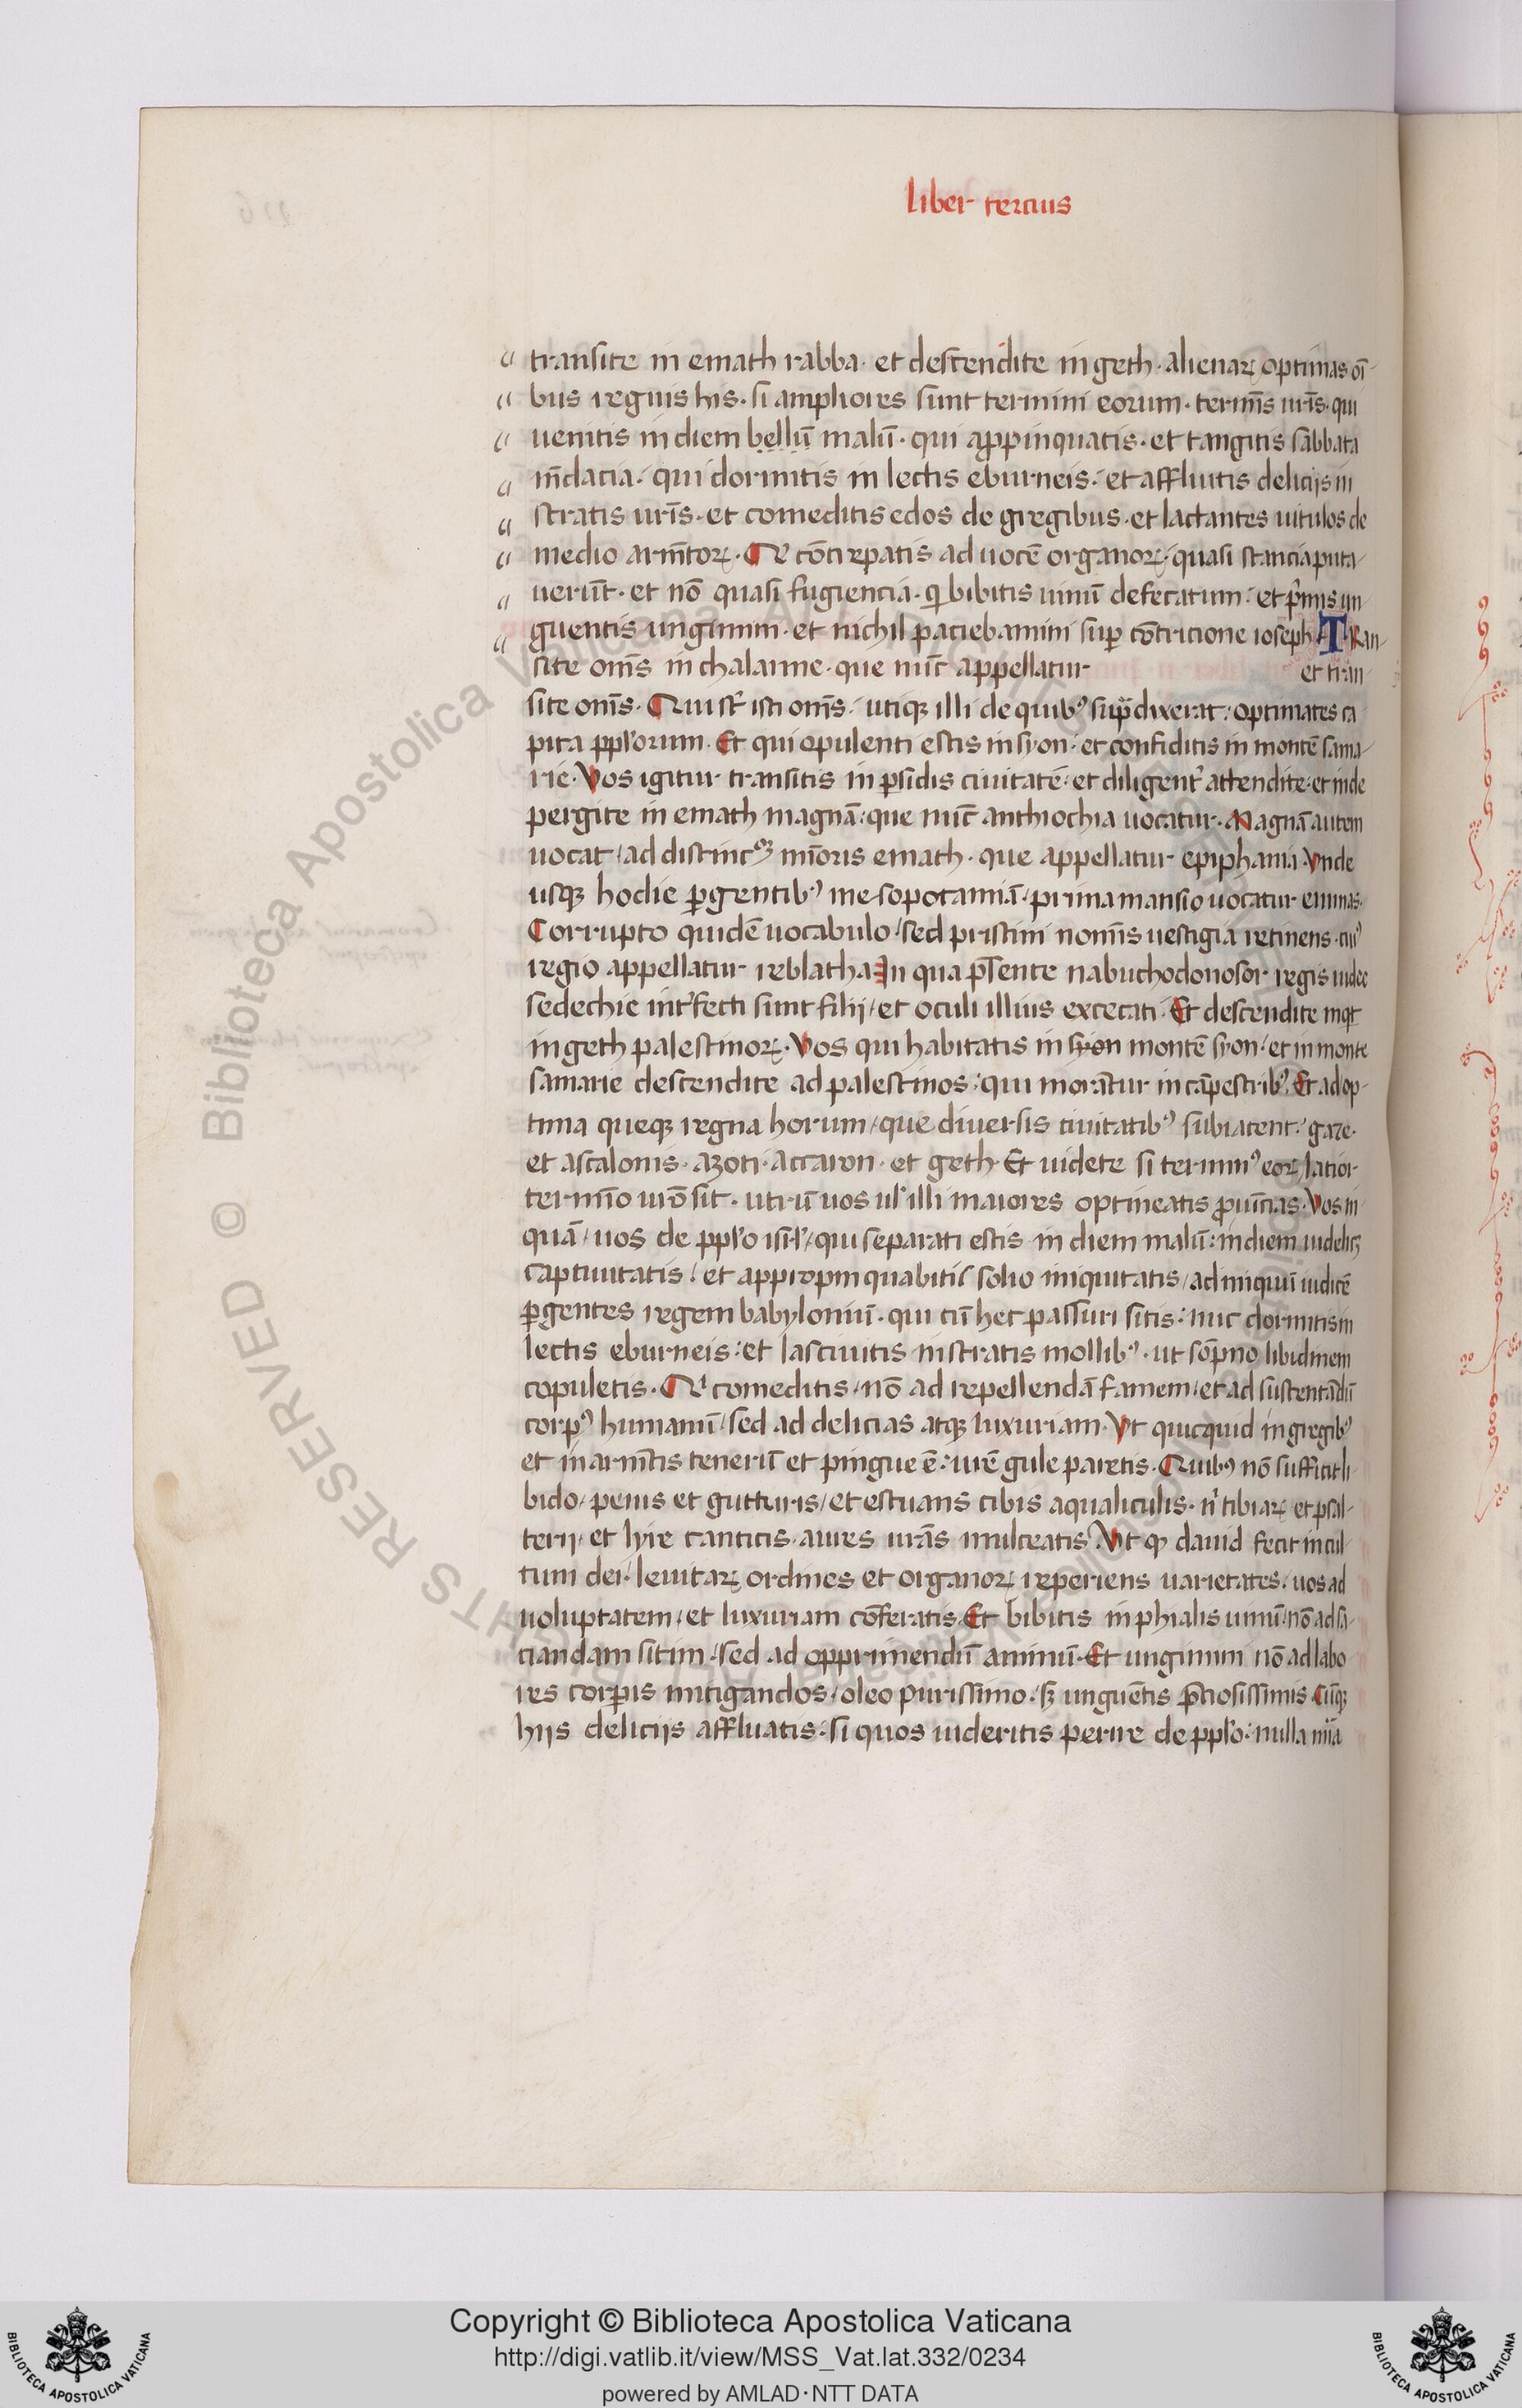 liber tercius
transite in emath rabba· et descendite in geth· alienaꝝ optimas oī-
bus regnis his· si ampliores sunt termini eorum· termīs ur̄is· qui
uenitis in diem bellū malū· qui aꝓpinquatis· et tangitis sabbata
m̄dacia· qui dormitis in lectis eburneis· et affluitis delicijs in
stratis ur̄is· et comeditis edos de gregibus· et lactantes uitulos de
medio arm̄toꝝ· Qͥ cōcrepatis ad uocē organoꝝ· quasi stancia puta-
uerūt· et nō quasi fugiencia· qͥ bibitis uinū defecatum· et pͥmis un
guentis unginimi· et nichil paciebamini suꝑ cōtricione ioseph· TRan-
site om̄s in chalanne· que nūc appellatur
et tran-
site om̄s· Qui sͭ isti om̄s· utiqꝫ illi de quibꝰ supͣ dixerat· optimates ca
pita ppl'orum· Et qui opulenti estis in syon· et confiditis in montē sama-
rie· Vos igitur transitis in ꝑsidis ciuitatē· et diligentͬ attendite· et inde
pergite in emath magnā· que nūc anthiochia uocatur· Magnā autem
uocat/ ad distinc̄oꝫ mīoris emath· que appellatur epiphania· Vnde
usqꝫ hodie ꝑgentibꝰ mesopotamiā/ prima mansio uocatur emmas·
Corrupto quidē uocabulo/ sed pristini nom̄is uestigia retinens· cuiꝰ
regio appellatur reblatha· In qua p̄sente nabuchodonosor regis iudee
sedechie intͬfecti sunt filij/ et oculi illius excecati· Et descendite inqͭ
in geth palestinoꝝ· Vos qui habitatis in syon montē syon/ et in monte
samarie descendite ad palestinos· qui morātur in cāpestribꝰ· Et ad op-
tima queqꝫ regna horum/ que diuersis ciuitatibꝰ subiacent· gaze·
et ascalonis· azoti· accaron· et geth· Et uidete si terminꝰ eoꝝ latior
termīo ur̄o sit· utrū uos ul' illi maiores optineatis ꝓuīcias· Vos in
quā/ uos de ppl'o isr̄l/ qui separati estis in diem malū· in diem uidelicꝫ
captiuitatis/ et appropinquabitis solio iniquitatis/ ad iniquū iudicē
ꝑgentes regem babyloniū· qui cū hec passuri sitis· nūc dormitis in
lectis eburneis· et lasciuitis in stratis mollibꝰ· ut sōpno libidinem
copuletis· Qͥ comeditis/ nō ad repellendā famem/ et ad sustentādū
corpꝰ humanū/ sed ad delicias atqꝫ luxuriam· Vt quicquid in gregibꝰ
et in arm̄tis tenerū et pingue ē· ur̄e gule paretis· Quibꝰ nō sufficit li-
bido/ penis et gutturis/ et estuans cibis aqualiculis· nͥ tibiaꝝ et psal-
terij· et lyre canticis· aures ur̄as mulceatis· Vt qͦ dauid fecit in cul-
tum dei/ leuitaꝝ ordines et organoꝝ reperiens uarietates· uos ad
uoluptatem/ et luxuriam cōferatis· Et bibitis in phialis uinū· nō ad sa-
ciandam sitim· sed ad opprimendū animū· Et unginimi nō ad labo
res corꝑis mitigandos/ oleo purissimo· sꝫ unguētis p̄ciosissimis· Cūqꝫ
hijs delicijs affluatis· si quos uideritis perire de ppl'o· nulla mīa
Copyright © Biblioteca Apostolica Vaticana
http://digi.vatlib.it/view/MSS_Vat.lat.332/0234
powered by AMLAD·NTT DATA